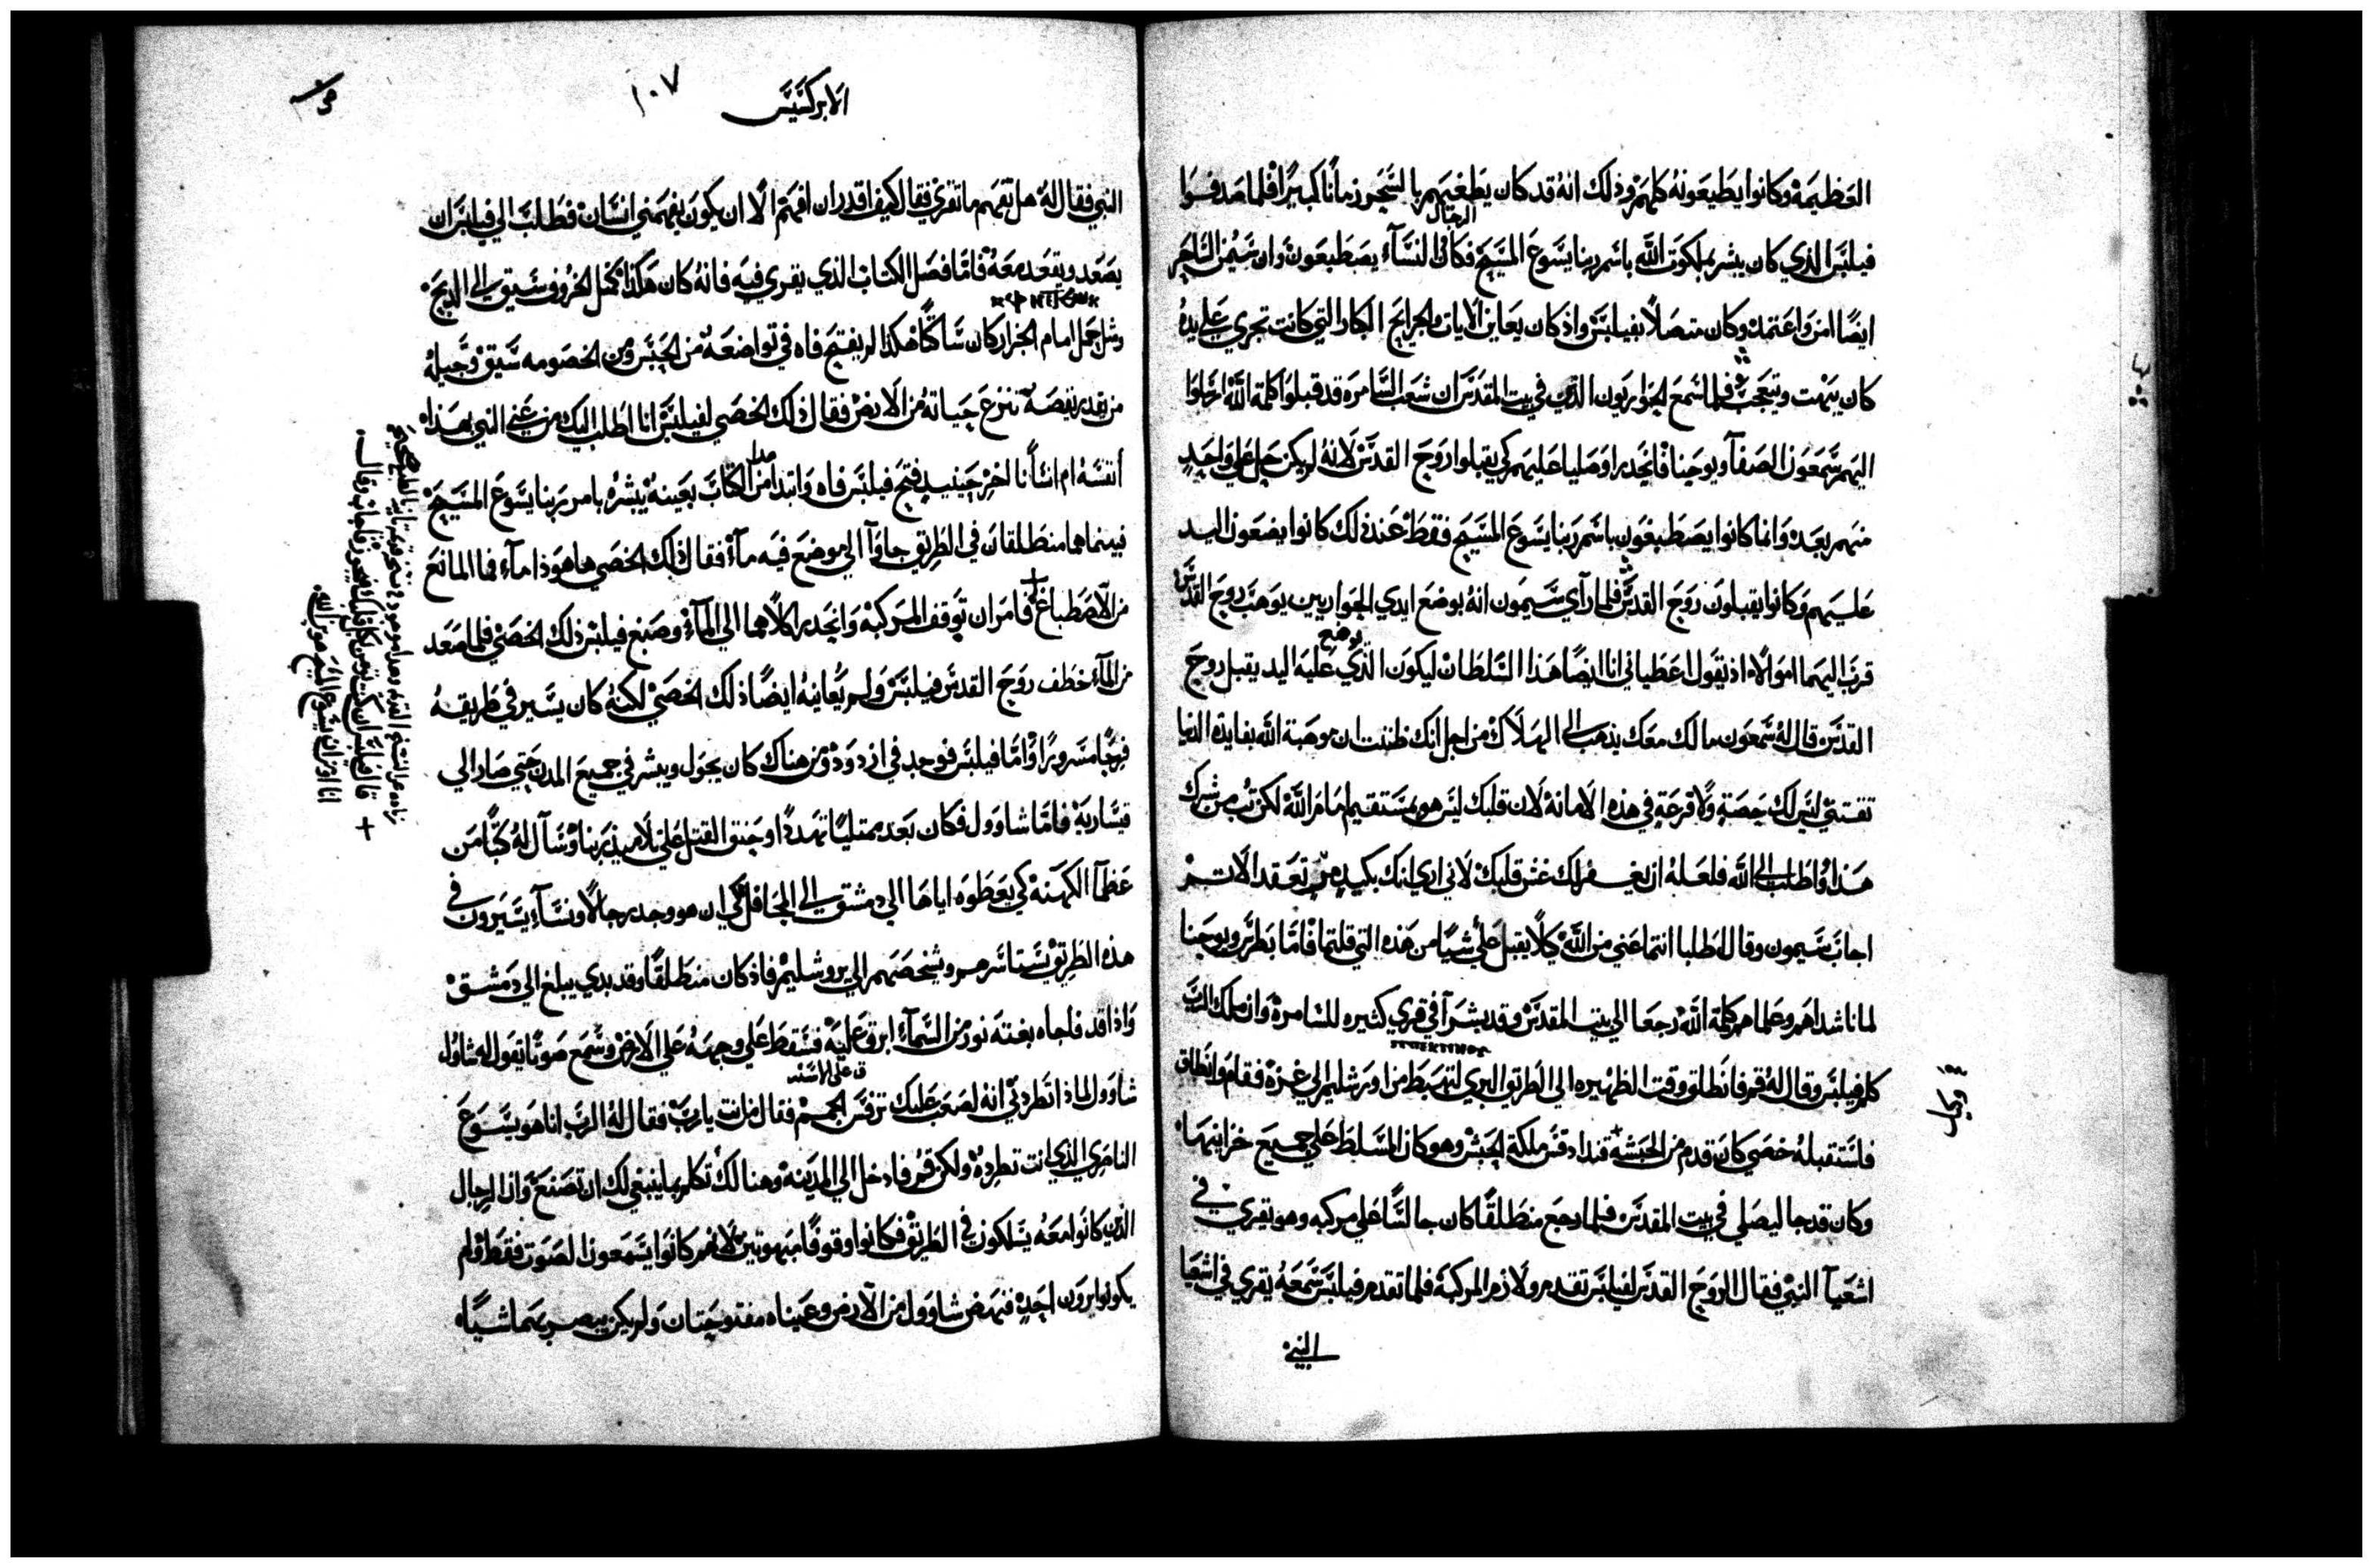 العظيمة وكانوا يطيعونه كلهم وذلك انه قد كان يطغيهم بالسحر زمانًا كبيرًا فلما صدقوا
الرجال
فيلبس الذي كان يبشر بملكوت الله باسم ربنا يسوع المسيح فكان والنسآء يصطبغون وان سيمن الساحر
ايضًا امن واعتمد وكان متصلاً بفيلبس واذ كان يعاين الايات والجرايح الكبار التي كانت تجري على يده
كان يبهت ويتعجب فلما سمع الحواريون الذين في بيت المقدس ان شعب السامره قد قبلوا كلمة الله ارسلوا
اليهم سمعون الصفآ ويوحنا فانحدرا وصليا عليهم كي يقبلوا روح القدس لانه لم يكن حل على واحدٍ
منهم بعد وانما كانوا يصطبغون باسم ربنا يسوع المسيح فقط عند ذلك كانوا يضعون اليد
عليهم وكانوا يقبلون روح القدس فلما رآي سيمون انه بوضع ايدي الحواريين يوهب روح القدس
يوضع
قرب اليهما اموالاً اذ يقول اعطياني انا ايضًا هذا السلطان ليكون الذي عليه اليد يقبل روح
القدس قال له سمعون مالك معك يذهب الى الهلاك من اجل انك ظننت ان موهبة الله بفايدة الدنيا
تقتني ليس لك حصة ولا قرعة في هذه الامانة لان قلبك ليس هو بمستقيم امام الله لكن تب من شرك
هذا واطلب الى الله فلعله ان يغفر لك غش قلبك لاني اري انك بكبد مر وتعقد الاثم
اجاب سيمون وقال اطلبا انتما عني من الله كلا يقبل علي شيًا من هذه التي قلتما فاما بطرس ويوحنا
لما ناشداهم وعلماهم كلمة الله رجعا الى بيت المقدس وقد بشرآ في قري كثيره للسامرة وان ملاك الرب
كلم فيلبس وقال له قم فانطلق وقت الظهيره الى الطريق البري لتهبط من اورشليم الى غزة فقام وانطلق
فاستقبله خصي كان قدم من الحبشة قنداقس ملكة الحبش وهو كان المسلط على جميع خزاينها
وكان قد جا ليصلي في بيت المقدس فلما رجع منطلقًا كان جالسًا على مركبه وهو يقري في
اشعيآ النبي فقال الروح القدس لفيلبس تقدم ولازم المركبة فلما تقدم فيلبس سمعه يقري في اشعيا
النبي
الابركسيس
١٠٧
النبي فقال له هل تفهم ما تقري فقال كيف اقدر ان افهم الا ان يكون يفهمني انسان فطلب الي فيلبس ان
يصعد ويقعد معه فاما فصل الكتاب الذي يقري فيه فانه كان هكذا كمثل الخروف سيق الى الذبح
ومثل حمل امام الجزار كان ساكتًا هكذا لم يفتح فاه في تواضعه من الحبس ومن الخصومه سيق وجيله
من يقدر يقصه تنزع حياته من الارض فقال ذلك الخصي لفيلبس انا اطلب اليك من عني النبي بهذا
أنفسه ام انسانا اخر حينيدٍ فتح فيلبس فاه وابتدا من الكتاب بعينه يبشره بامر ربنا يسوع المسيح
فبينما هما منطلقان في الطريق جاوآ الى موضع فيه مآء فقال ذلك الخصي ها هوذا مآء فما المانع
من الاصطباغ فامر ان توقف المركبة وانحدر كلاهما الى المآء وصبغ فيلبس ذلك الخصي فلما صعد
من المآء خطف روح القدس فيلبس ولم يعاينه ايضًا ذلك الخصي لكنه كان يسير في طريقه
فرحًا مسرورًا واما فيلبس فوجد في ازدود ومن هناك كان يجول ويبشر في جميع المدن حتي صار الى
قيسارية فاما شاوول فكان بعد ممتليًا تهددًا وحنق القتل على تلاميذ ربنا وسآل له كتبًا من
عظمآ الكهنة كي يعطوه اياها الى دمشق الى المحافل كي ان هو وجد رجالاً ونسآء يسيرون في
هذه الطريق يستاسرهم ويشخصهم الى يروشليم فاذ كان منطلقًا وقد بدي يبلغ الى دمشق
واذا قد فاجاه بغتة نور من السمآء ابرق عليه فسقط على وجهه على الارض وسمع صوتًا يقول له شاوُل
شاوول لماذا تطردني انه لصعب عليك ترفس المهم فقال من انت يا رب فقال له الرب انا هو يسوع
الناصري الذي انت تطرده ولكن قم فادخل الى المدينة وهنالك تكلم بما ينبغي لك ان تصنع وان الرجال
الذين كانوا معه يسلكون في الطريق فكانوا وقوفًا مبهوتين لانهم كانوا يسمعون الصوت فقط ولم
يكونوا يرون احدٍ فنهض شاوول من الارض وعيناه مفتوحتان ولم يكن يبصر بهما شيًا
+ قال فيلبس ان كنت تومن بكل قلبك فيجوز فاجاب وقال
انا اومن ان يسوع المسيح هو ابن الله